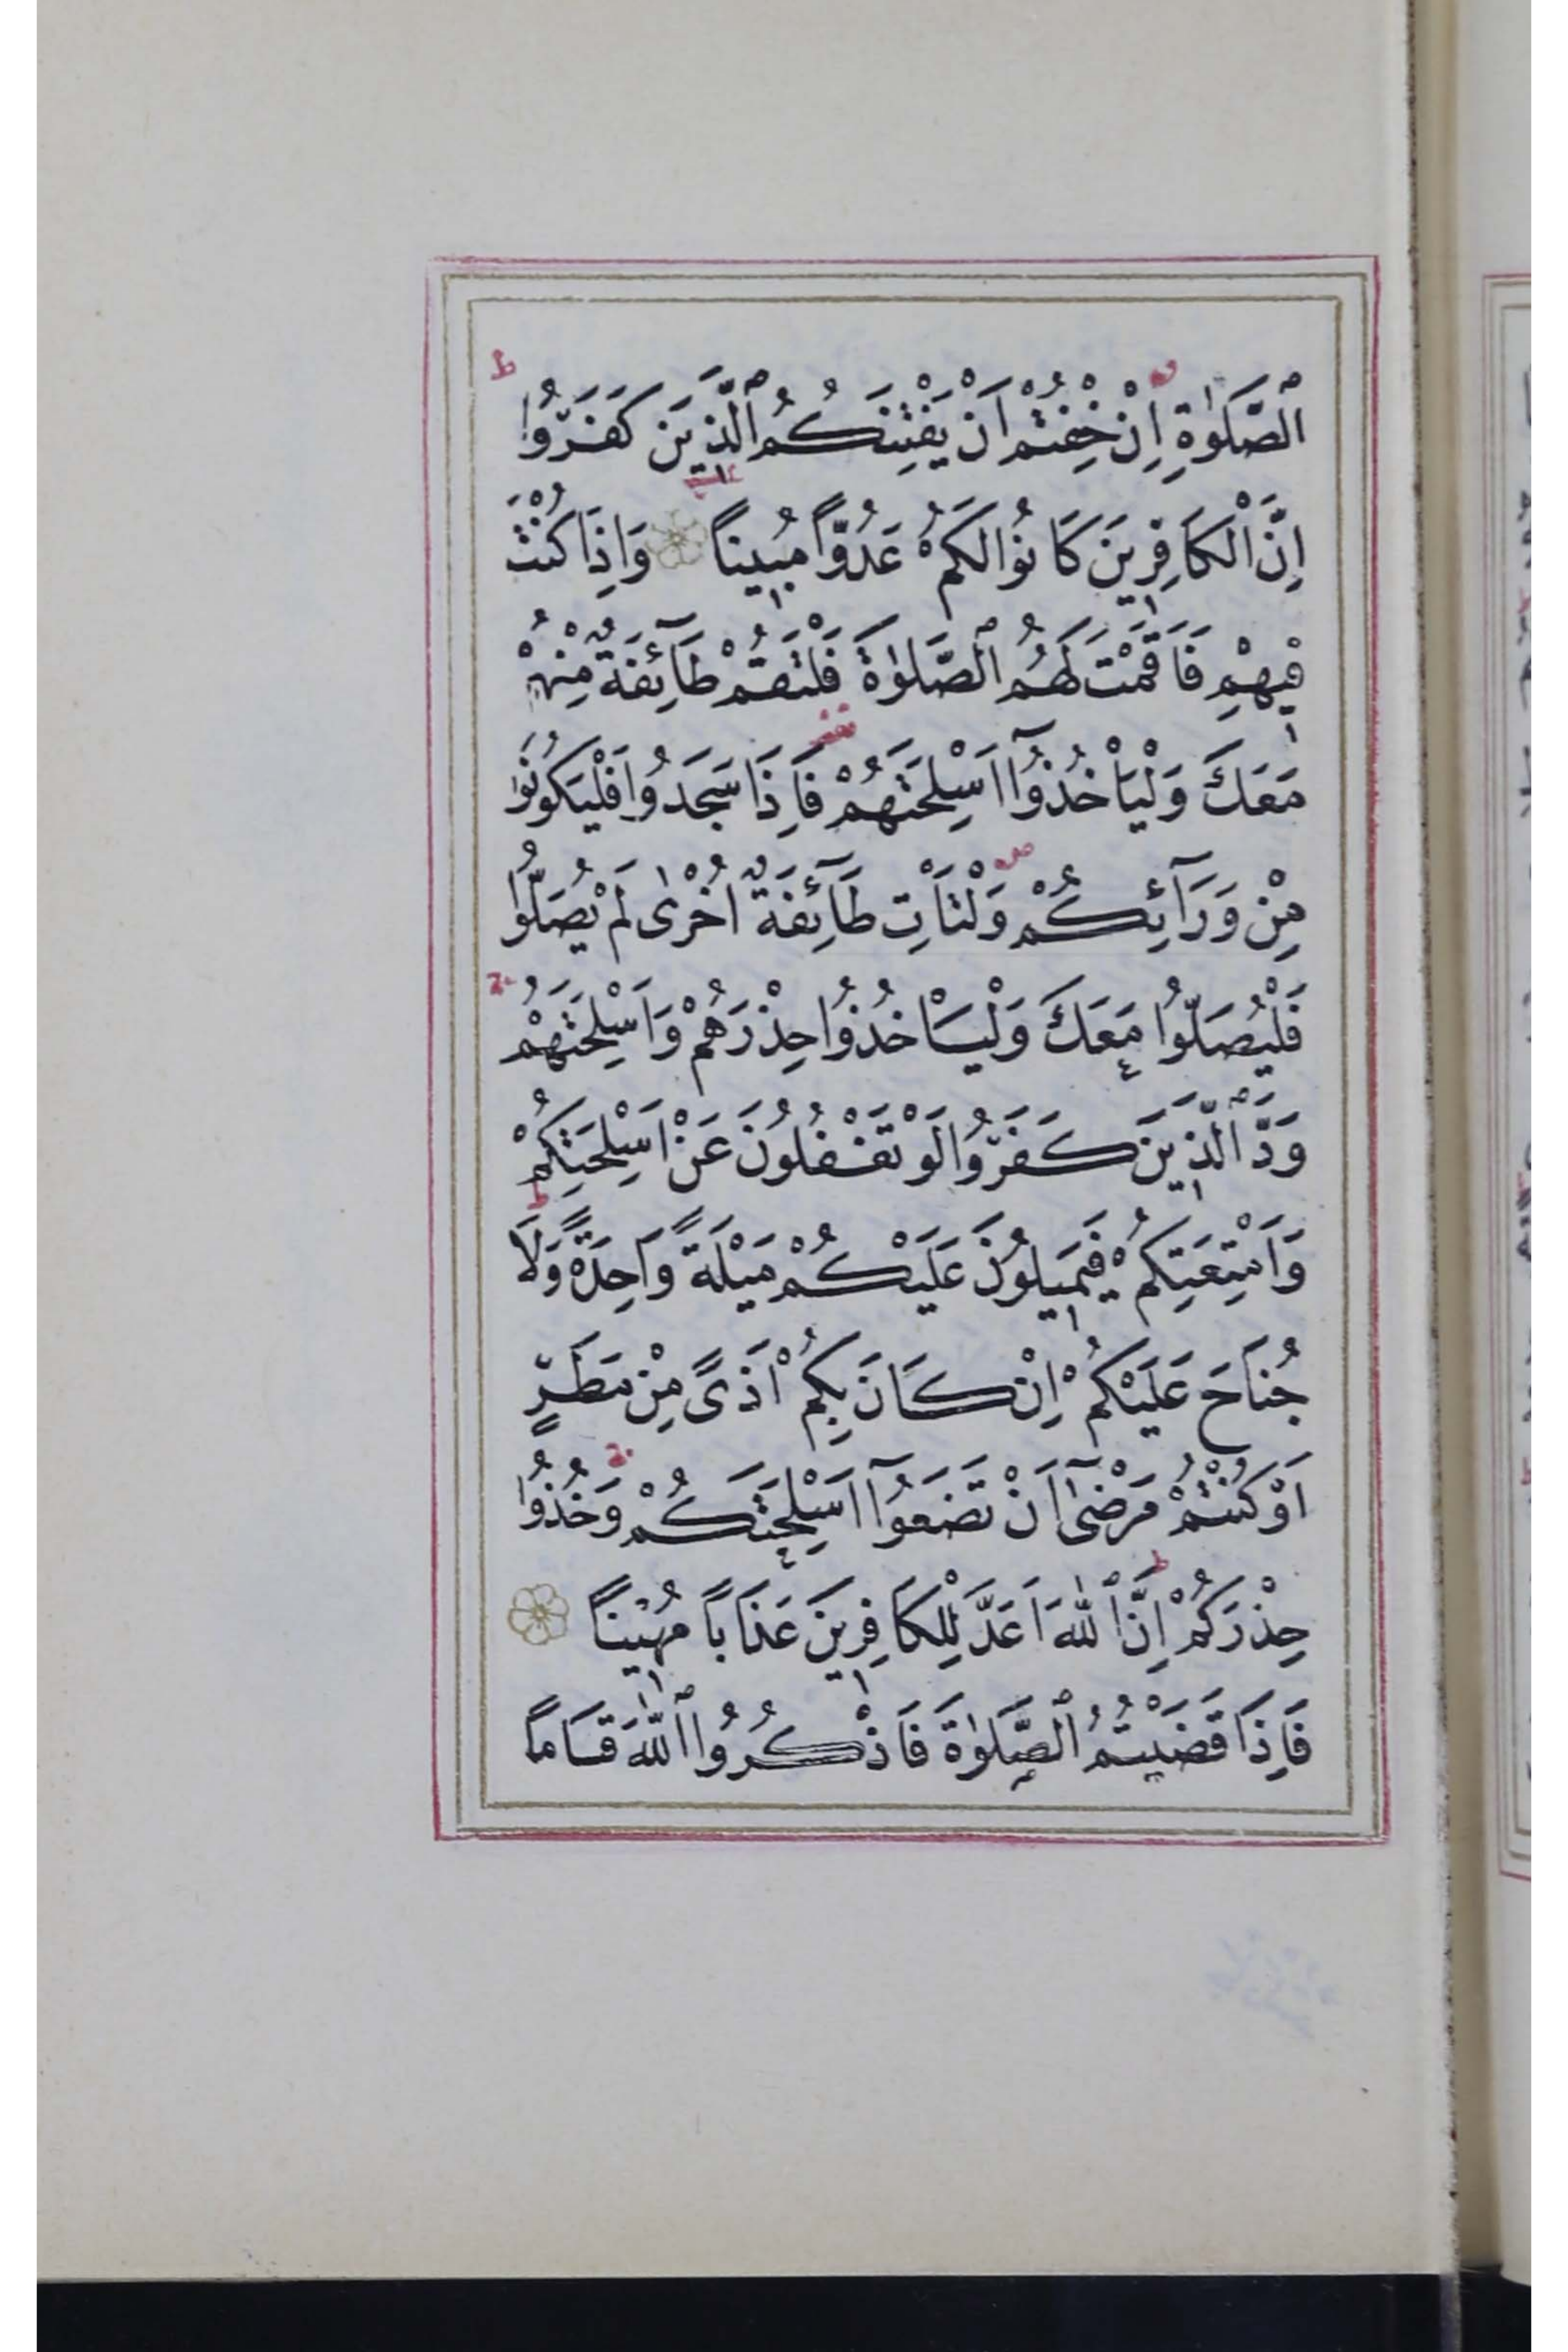 ٱلصَّلٰوةِ اِنْ خِفْتُمْ اَنْ يَفْتِنَكُمُ ٱلَّذِينَ كَفَرُوا
اِنَّ الْكَافِرِينَ كَانُوا لَكُمْ عَدُوًّا مُبِينًا وَاِذَا كُنْتَ
فِيهِمْ فَاَقَمْتَ لَهُمُ ٱلصَّلٰوةَ فَلْتَقُمْ طَآئِفَةٌ مِنْهُمْ
مَعَكَ وَلْيَأْخُذُوٓا اَسْلِحَتَهُمْ فَاِذَا سَجَدُوا فَلْيَكُونُوا
مِنْ وَرَآئِكُمْ وَلْتَأْتِ طَآئِفَةٌ اُخْرٰى لَمْ يُصَلُّوا
فَلْيُصَلُّوا مَعَكَ وَلْيَأْخُذُوا حِذْرَهُمْ وَاَسْلِحَتَهُمْ
وَدَّ ٱلَّذِينَ كَفَرُوا لَوْ تَغْفُلُونَ عَنْ اَسْلِحَتِكُمْ
وَاَمْتِعَتِكُمْ فَيَمِيلُونَ عَلَيْكُمْ مَيْلَةً وَاحِدَةً وَلَا
جُنَاحَ عَلَيْكُمْ اِنْ كَانَ بِكُمْ اَذًى مِنْ مَطَرٍ
اَوْ كُنْتُمْ مَرْضٰٓى اَنْ تَضَعُوٓا اَسْلِحَتَكُمْ وَخُذُوا
حِذْرَكُمْ اِنَّ ٱللّٰهَ اَعَدَّ لِلْكَافِرِينَ عَذَابًا مُهِينًا
فَاِذَا قَضَيْتُمُ ٱلصَّلٰوةَ فَاذْكُرُوا ٱللّٰهَ